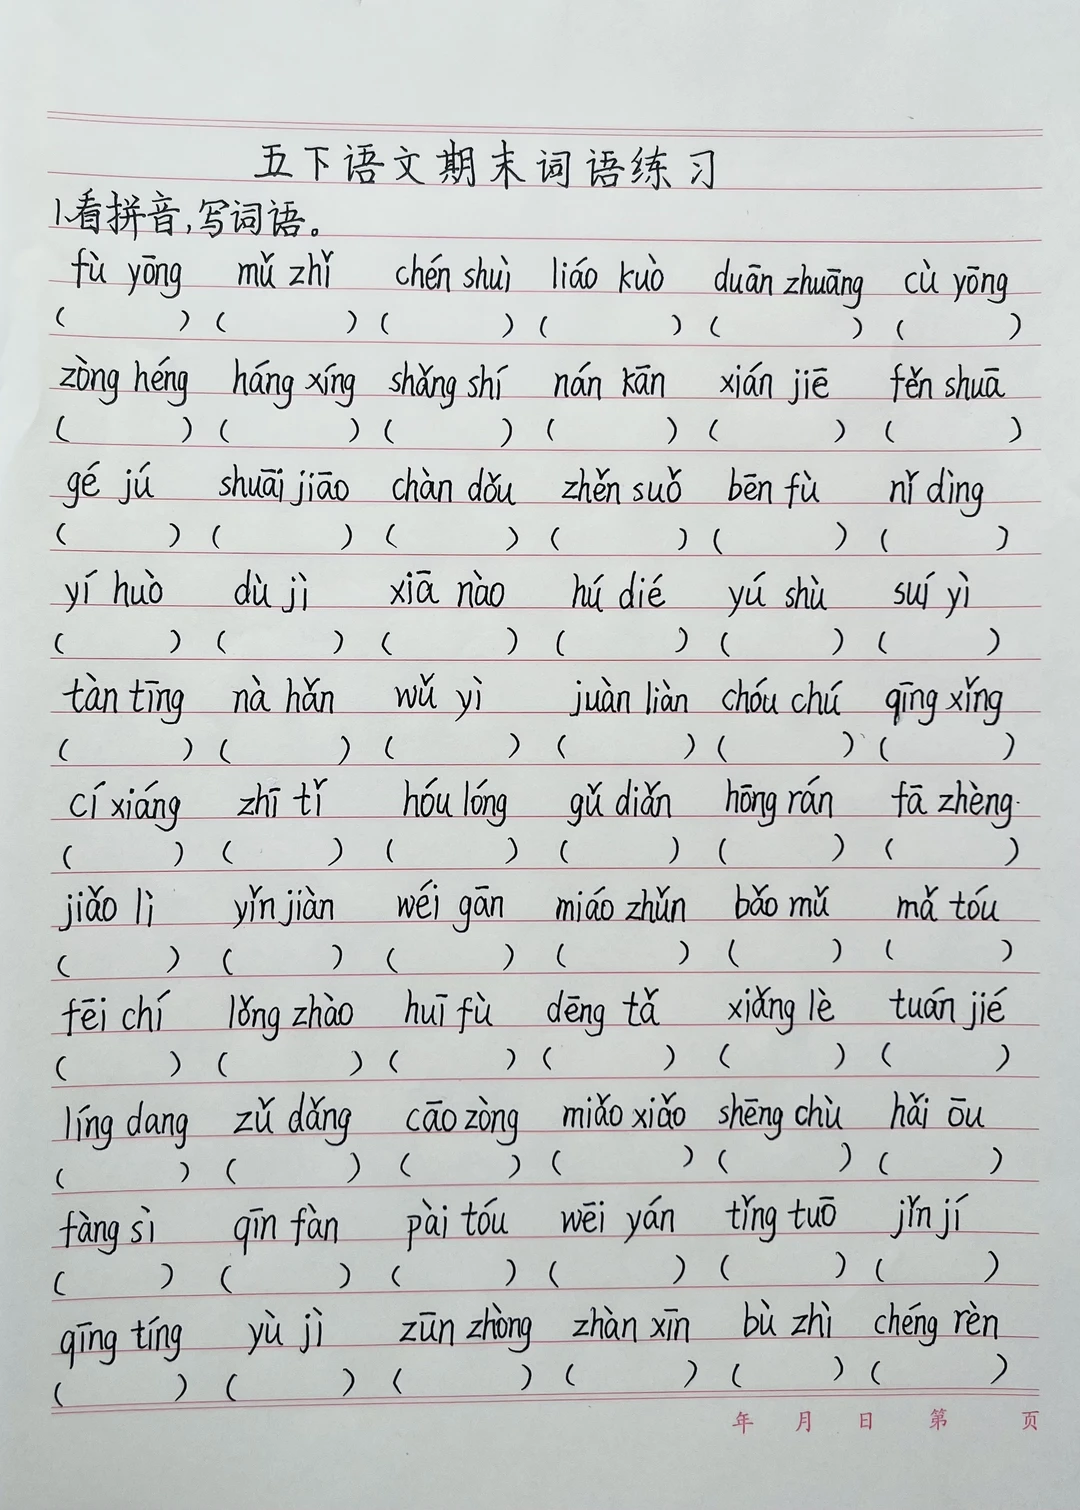 五下语文期末词语练习
1.看拼音,写词语。
fù yōng mǔ zhǐ chén shuì liáo kuò duān zhuāng cù yōng
( ) ( ) ( ) ( ) ( ) ( )
zòng héng háng xíng shǎng shí nán kān xián jiē fěn shuā
( ) ( ) ( ) ( ) ( ) ( )
gé jú shuāi jiāo chàn dǒu zhěn suǒ bēn fù nǐ dìng
( ) ( ) ( ) ( ) ( ) ( )
yí huò dù jì xiā nào hú dié yú shù suí yì
( ) ( ) ( ) ( ) ( ) ( )
tàn tīng nà hǎn wǔ yì juàn liàn chóu chú qīng xǐng
( ) ( ) ( ) ( ) ( ) ( )
cí xiáng zhī tǐ hóu lóng gǔ diǎn hōng rán fā zhèng
( ) ( ) ( ) ( ) ( ) ( )
jiǎo lì yǐn jiàn wéi gān miáo zhǔn bǎo mǔ mǎ tóu
( ) ( ) ( ) ( ) ( ) ( )
fēi chí lǒng zhào huī fù dēng tǎ xiǎng lè tuán jié
( ) ( ) ( ) ( ) ( ) ( )
líng dang zǔ dǎng cāo zòng miǎo xiǎo shēng chù hǎi ōu
( ) ( ) ( ) ( ) ( ) ( )
fàng sì qīn fàn pài tóu wēi yán tǐng tuō jǐn jí
( ) ( ) ( ) ( ) ( ) ( )
qīng tíng yù jì zūn zhòng zhàn xīn bù zhì chéng rèn
( ) ( ) ( ) ( ) ( ) ( )
年 月 日 第 页